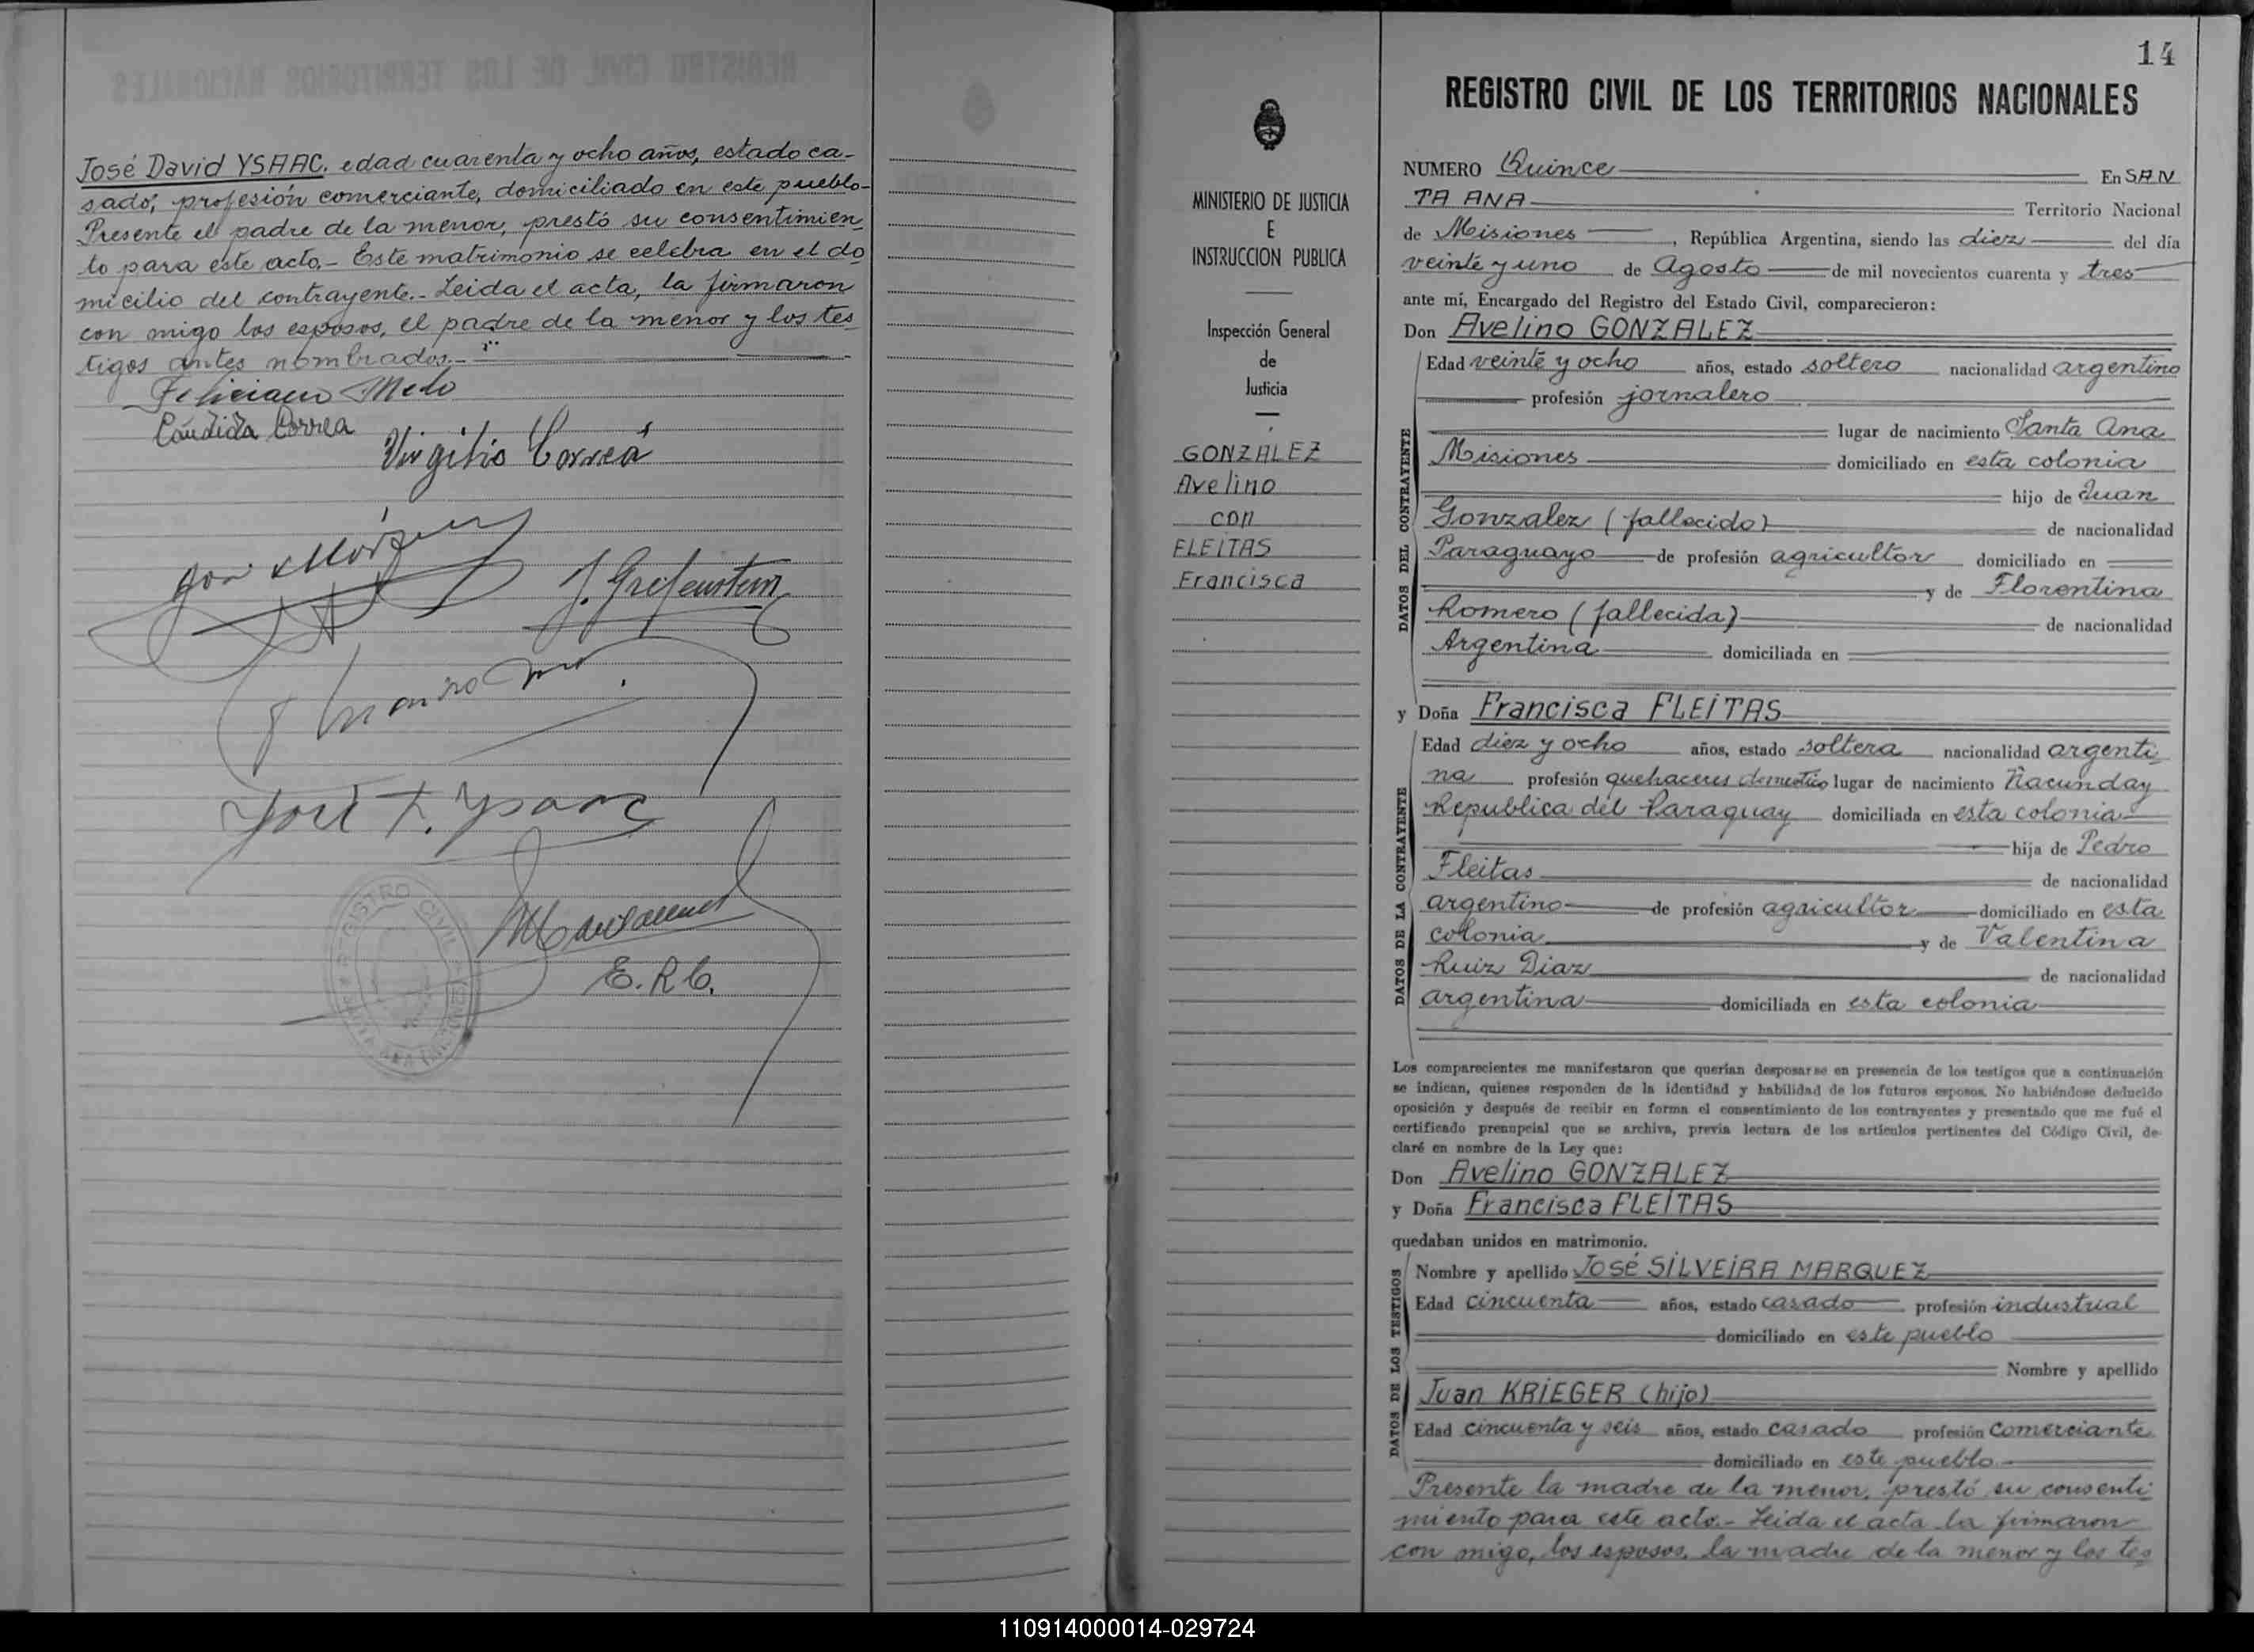 José David YSAAC, edad cuarenta y ocho años, estado ca-
sado, profesión comerciante, domiciliado en este pueblo-
Presente el padre de la menor, prestó su consentimien_
to para este acto.- Este matrimonio se celebra en el do
micilio del contrayente.- Leida el acta, la firmaron
con migo los esposos, el padre de la menor y los tes
tigos antes nombrados.-
Feliciano Melo
Cándida Correa
Virgilio Correa
J. Grefenstein
José D. Ysaac
E. R. C.
REGISTRO CIVIL
14
REGISTRO CIVIL DE LOS TERRITORIOS NACIONALES
MINISTERIO DE JUSTICIA
E
INSTRUCCION PUBLICA
Inspección General
de
Justicia
GONZALEZ
Avelino
con
FLEITAS
Francisca
NUMERO Quince En SAN
TA ANA Territorio Nacional
de Misiones, República Argentina, siendo las diez del día
veinte y uno de Agosto de mil novecientos cuarenta y tres
ante mí, Encargado del Registro del Estado Civil, comparecieron:
Don Avelino GONZALEZ
DATOS DEL CONTRAYENTE
Edad veinte y ocho años, estado soltero nacionalidad argentino
profesión jornalero
lugar de nacimiento Santa Ana
Misiones domiciliado en esta colonia
hijo de Juan
Gonzalez (fallecido) de nacionalidad
Paraguayo de profesión agricultor domiciliado en
y de Florentina
Romero (fallecida) de nacionalidad
Argentina domiciliada en
y Doña Francisca FLEITAS
DATOS DE LA CONTRAYENTE
Edad diez y ocho años, estado soltera nacionalidad argenti_
na profesión quehaceres domestico lugar de nacimiento Ñacunday
Republica del Paraguay domiciliada en esta colonia
hija de Pedro
Fleitas de nacionalidad
argentino de profesión agricultor domiciliado en esta
colonia y de Valentina
Ruiz Diaz de nacionalidad
argentina domiciliada en esta colonia
Los comparecientes me manifestaron que querían desposarse en presencia de los testigos que a continuación
se indican, quienes responden de la identidad y habilidad de los futuros esposos. No habiéndose deducido
oposición y después de recibir en forma el consentimiento de los contrayentes y presentado que me fué el
certificado prenupcial que se archiva, previa lectura de los artículos pertinentes del Código Civil, de-
claré en nombre de la Ley que:
Don Avelino GONZALEZ
y Doña Francisca FLEITAS
quedaban unidos en matrimonio.
DATOS DE LOS TESTIGOS
Nombre y apellido José SILVEIRA MARQUEZ
Edad cincuenta años, estado casado profesión industrial
domiciliado en este pueblo
Nombre y apellido
Juan KRIEGER (hijo)
Edad cincuenta y seis años, estado casado profesión comerciante
domiciliado en este pueblo
Presente la madre de la menor, prestó su consenti_
miento para este acto.- Leida el acta la firmaron
con migo, los esposos, la madre de la menor y los tes
110914000014-029724